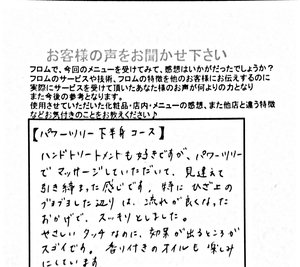 お客様の声をお聞かせ下さい
フロムで、今回のメニューを受けてみて、感想はいかがだったでしょうか?
フロムのサービスや技術、フロムの特徴を他のお客様にお伝えするのに
実際にサービスを受けて頂いたあなた様のお声が何よりの力となり
また今後の参考となります。
使用させていただいた化粧品・店内・メニューの感想、また他店と違う特徴
などお気付きのことをお教えください♪
【パワーツリー下半身コース】
ハンドトリートメントも好きですが、パワーツリー
でマッサージしていただいて、見違えて
引き締まった感じです。特にひざ上の
プヨプヨした辺りは、流れが良くなった
おかげで、スッキリとしました。
やさしいタッチなのに、効果が出るところが
スゴイです。香り付きのオイルも楽しみ
にしています